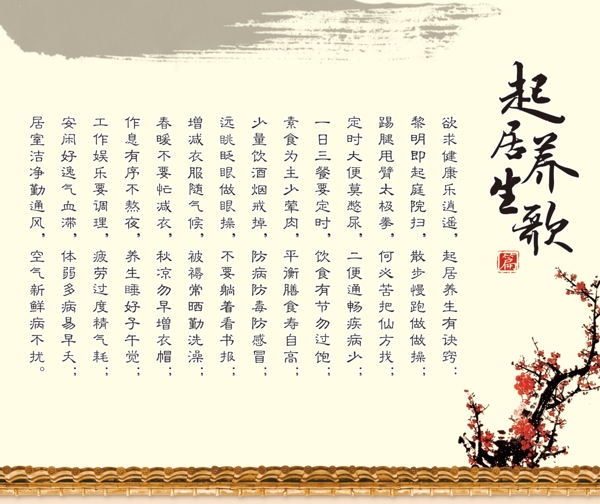 起居养生歌
篇
欲求健康乐逍遥，起居养生有诀窍：
黎明即起庭院扫，散步慢跑做做操；
踢腿甩臂太极拳，何必苦把仙方找；
定时大便莫憋尿，二便通畅疾病少；
一日三餐要定时，饮食有节勿过饱；
素食为主少荤肉，平衡膳食寿自高；
少量饮酒烟戒掉，防病防毒防感冒；
远眺眨眼做眼操，不要躺着看书报；
增减衣服随气候，被褥常晒勤洗澡；
春暖不要忙减衣，秋凉勿早增衣帽；
作息有序不熬夜，养生睡好子午觉；
工作娱乐要调理，疲劳过度精气耗；
安闲好逸气血滞，体弱多病易早夭；
居室洁净勤通风，空气新鲜病不扰。